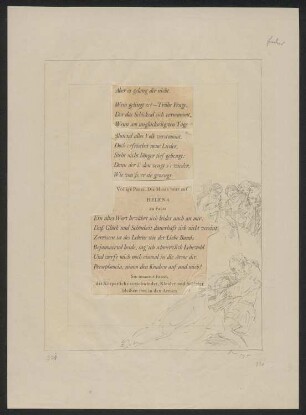 Aber es gelang dir nicht.
Wem gelingt es? – Trübe Frage,
Der das Schicksal sich vermummt,
Wenn am unglückseligsten Tage
Blutend alles Volk verstummt.
Doch erfrischet neue Lieder,
Steht nicht länger tief gebeugt:
Denn der Boden zeugt sie wieder,
Wie von je er sie gezeugt.
Völlige Pause. Die Musik hört auf
HELENA
zu Faust
Ein altes Wort bewährt sich leider auch an mir:
Daß Glück und Schönheit dauerhaft sich nicht vereint.
Zerrissen ist des Lebens wie der Liebe Band;
Bejammernd beide, sag ich schmerzlich Lebewohl
Und werfe mich noch einmal in die Arme dir.
Persephoneia, nimm den Knaben auf und mich!
Sie umarmt Faust,
das Körperliche verschwindet, Kleid und Schleier
bleiben ihm in den Armen